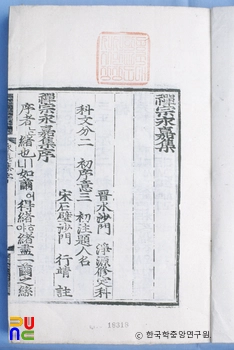 禪宗永嘉集
晋水沙門 淨源修定科
宋石壁沙門 行靖 註
科文分二 初序意三 初注題人名
禪宗永嘉集序
序者
緖也
如繭
得緖
緖盡一繭之絲
PUNC
18319
©한국학중앙연구원